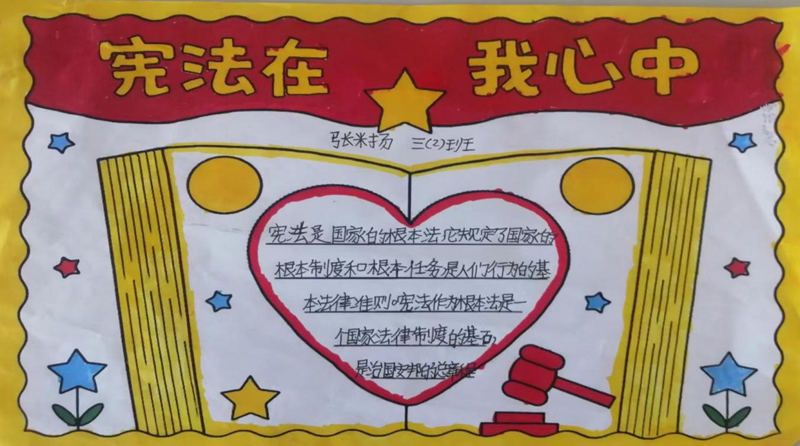 宪法在 我心中
张米扬 三(2)班
宪法是国家的根本法,它规定了国家的
根本制度和根本任务,是人们行为的基
本法律准则。宪法作为根本法是一
个国家法律制度的基石,
是治国安邦的总章程